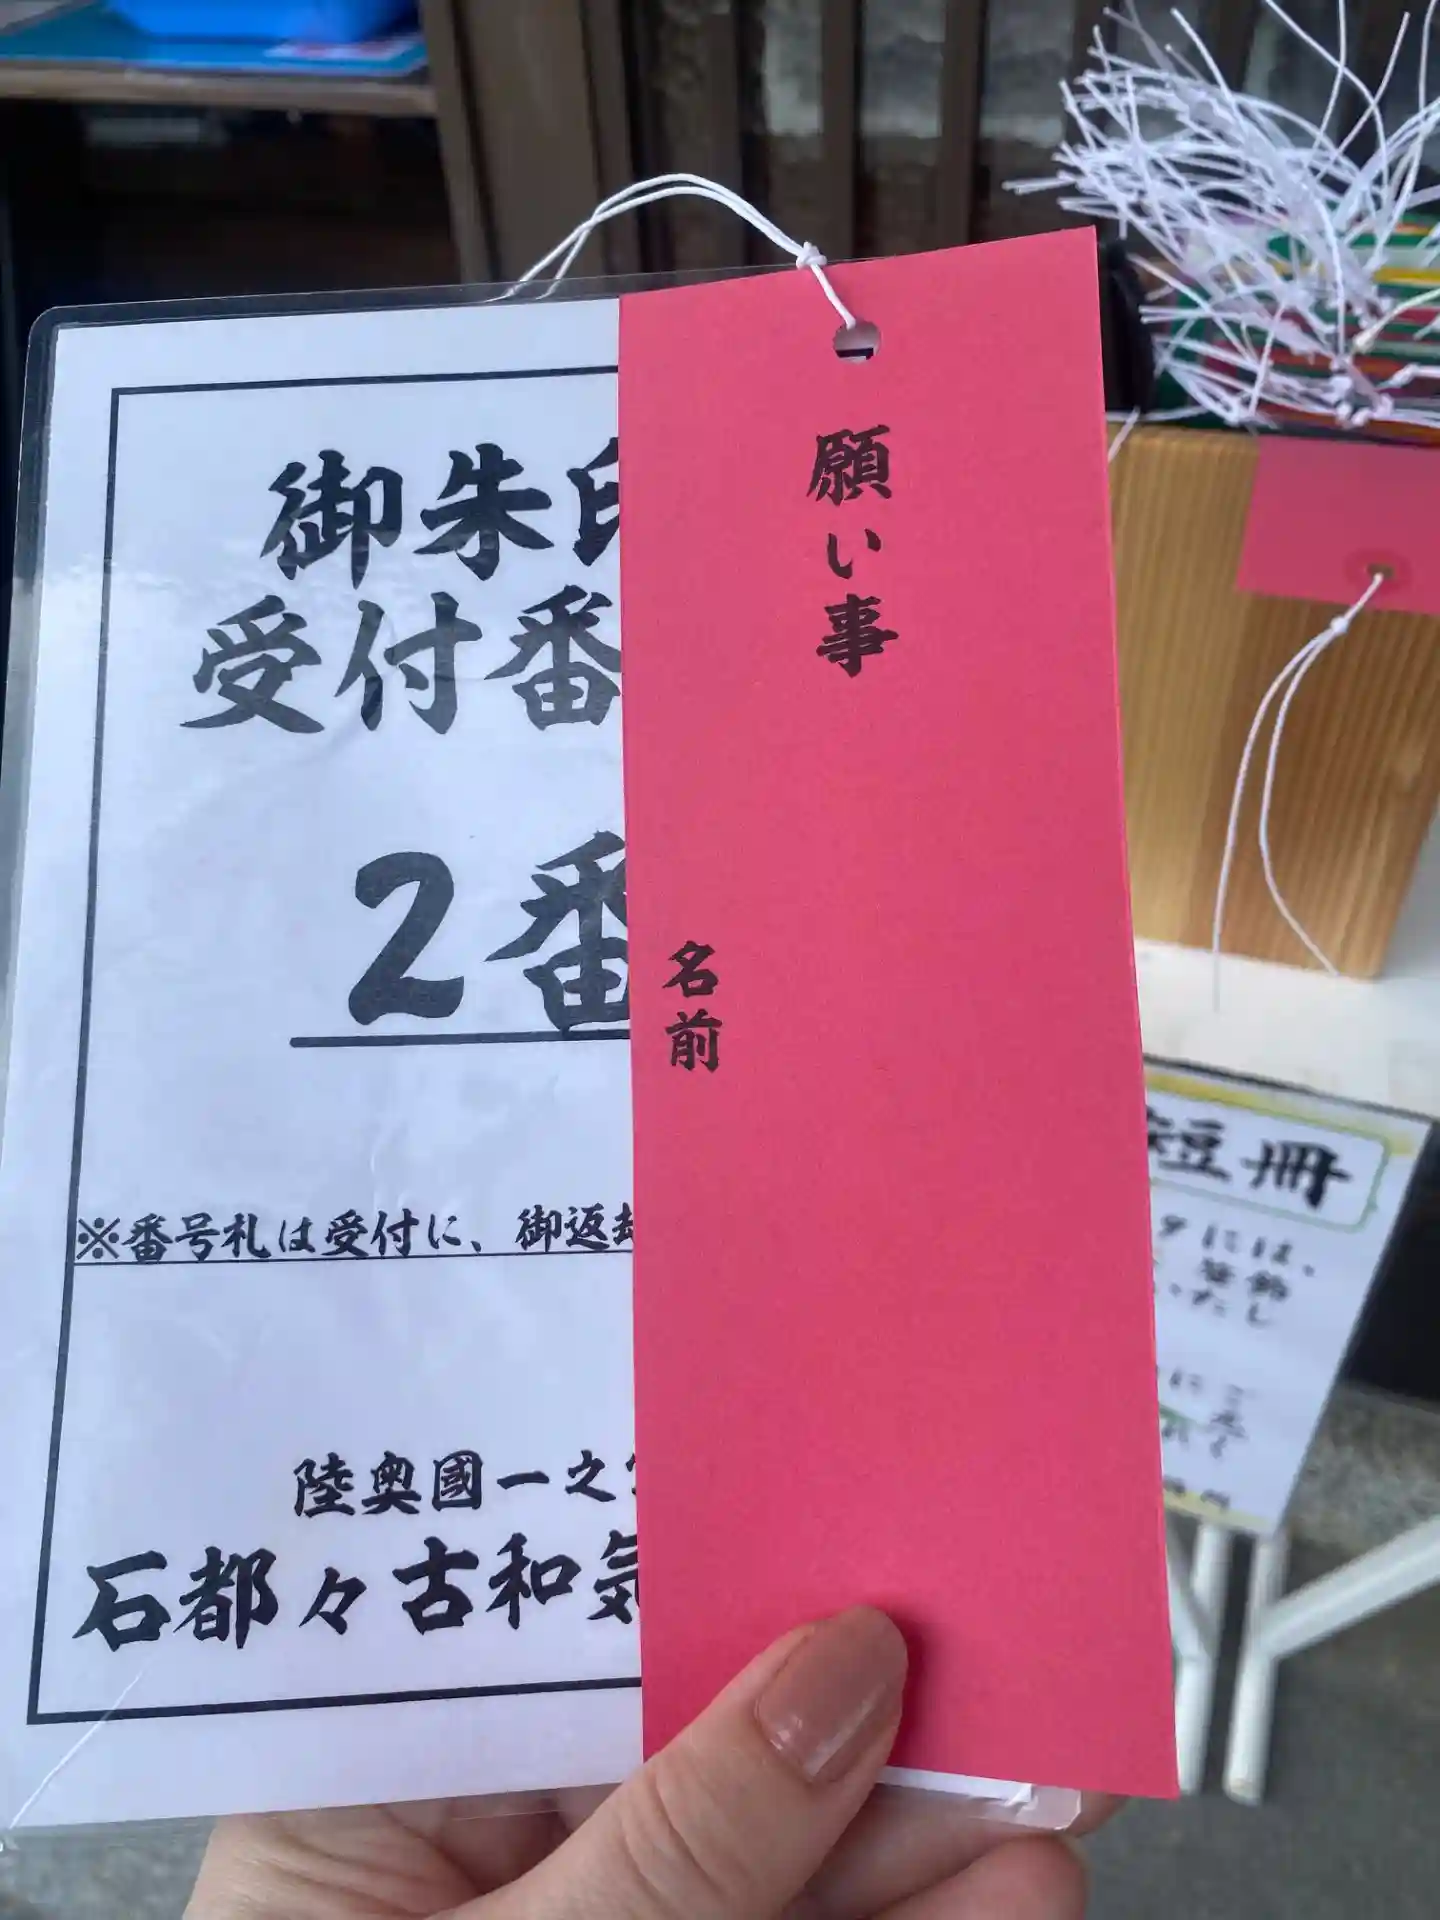 御朱印
受付番
2番
※番号札は受付に、御返却
陸奥國一之宮
石都々古和気
願い事
名前
短冊
には、
笹飾
いたし
にご